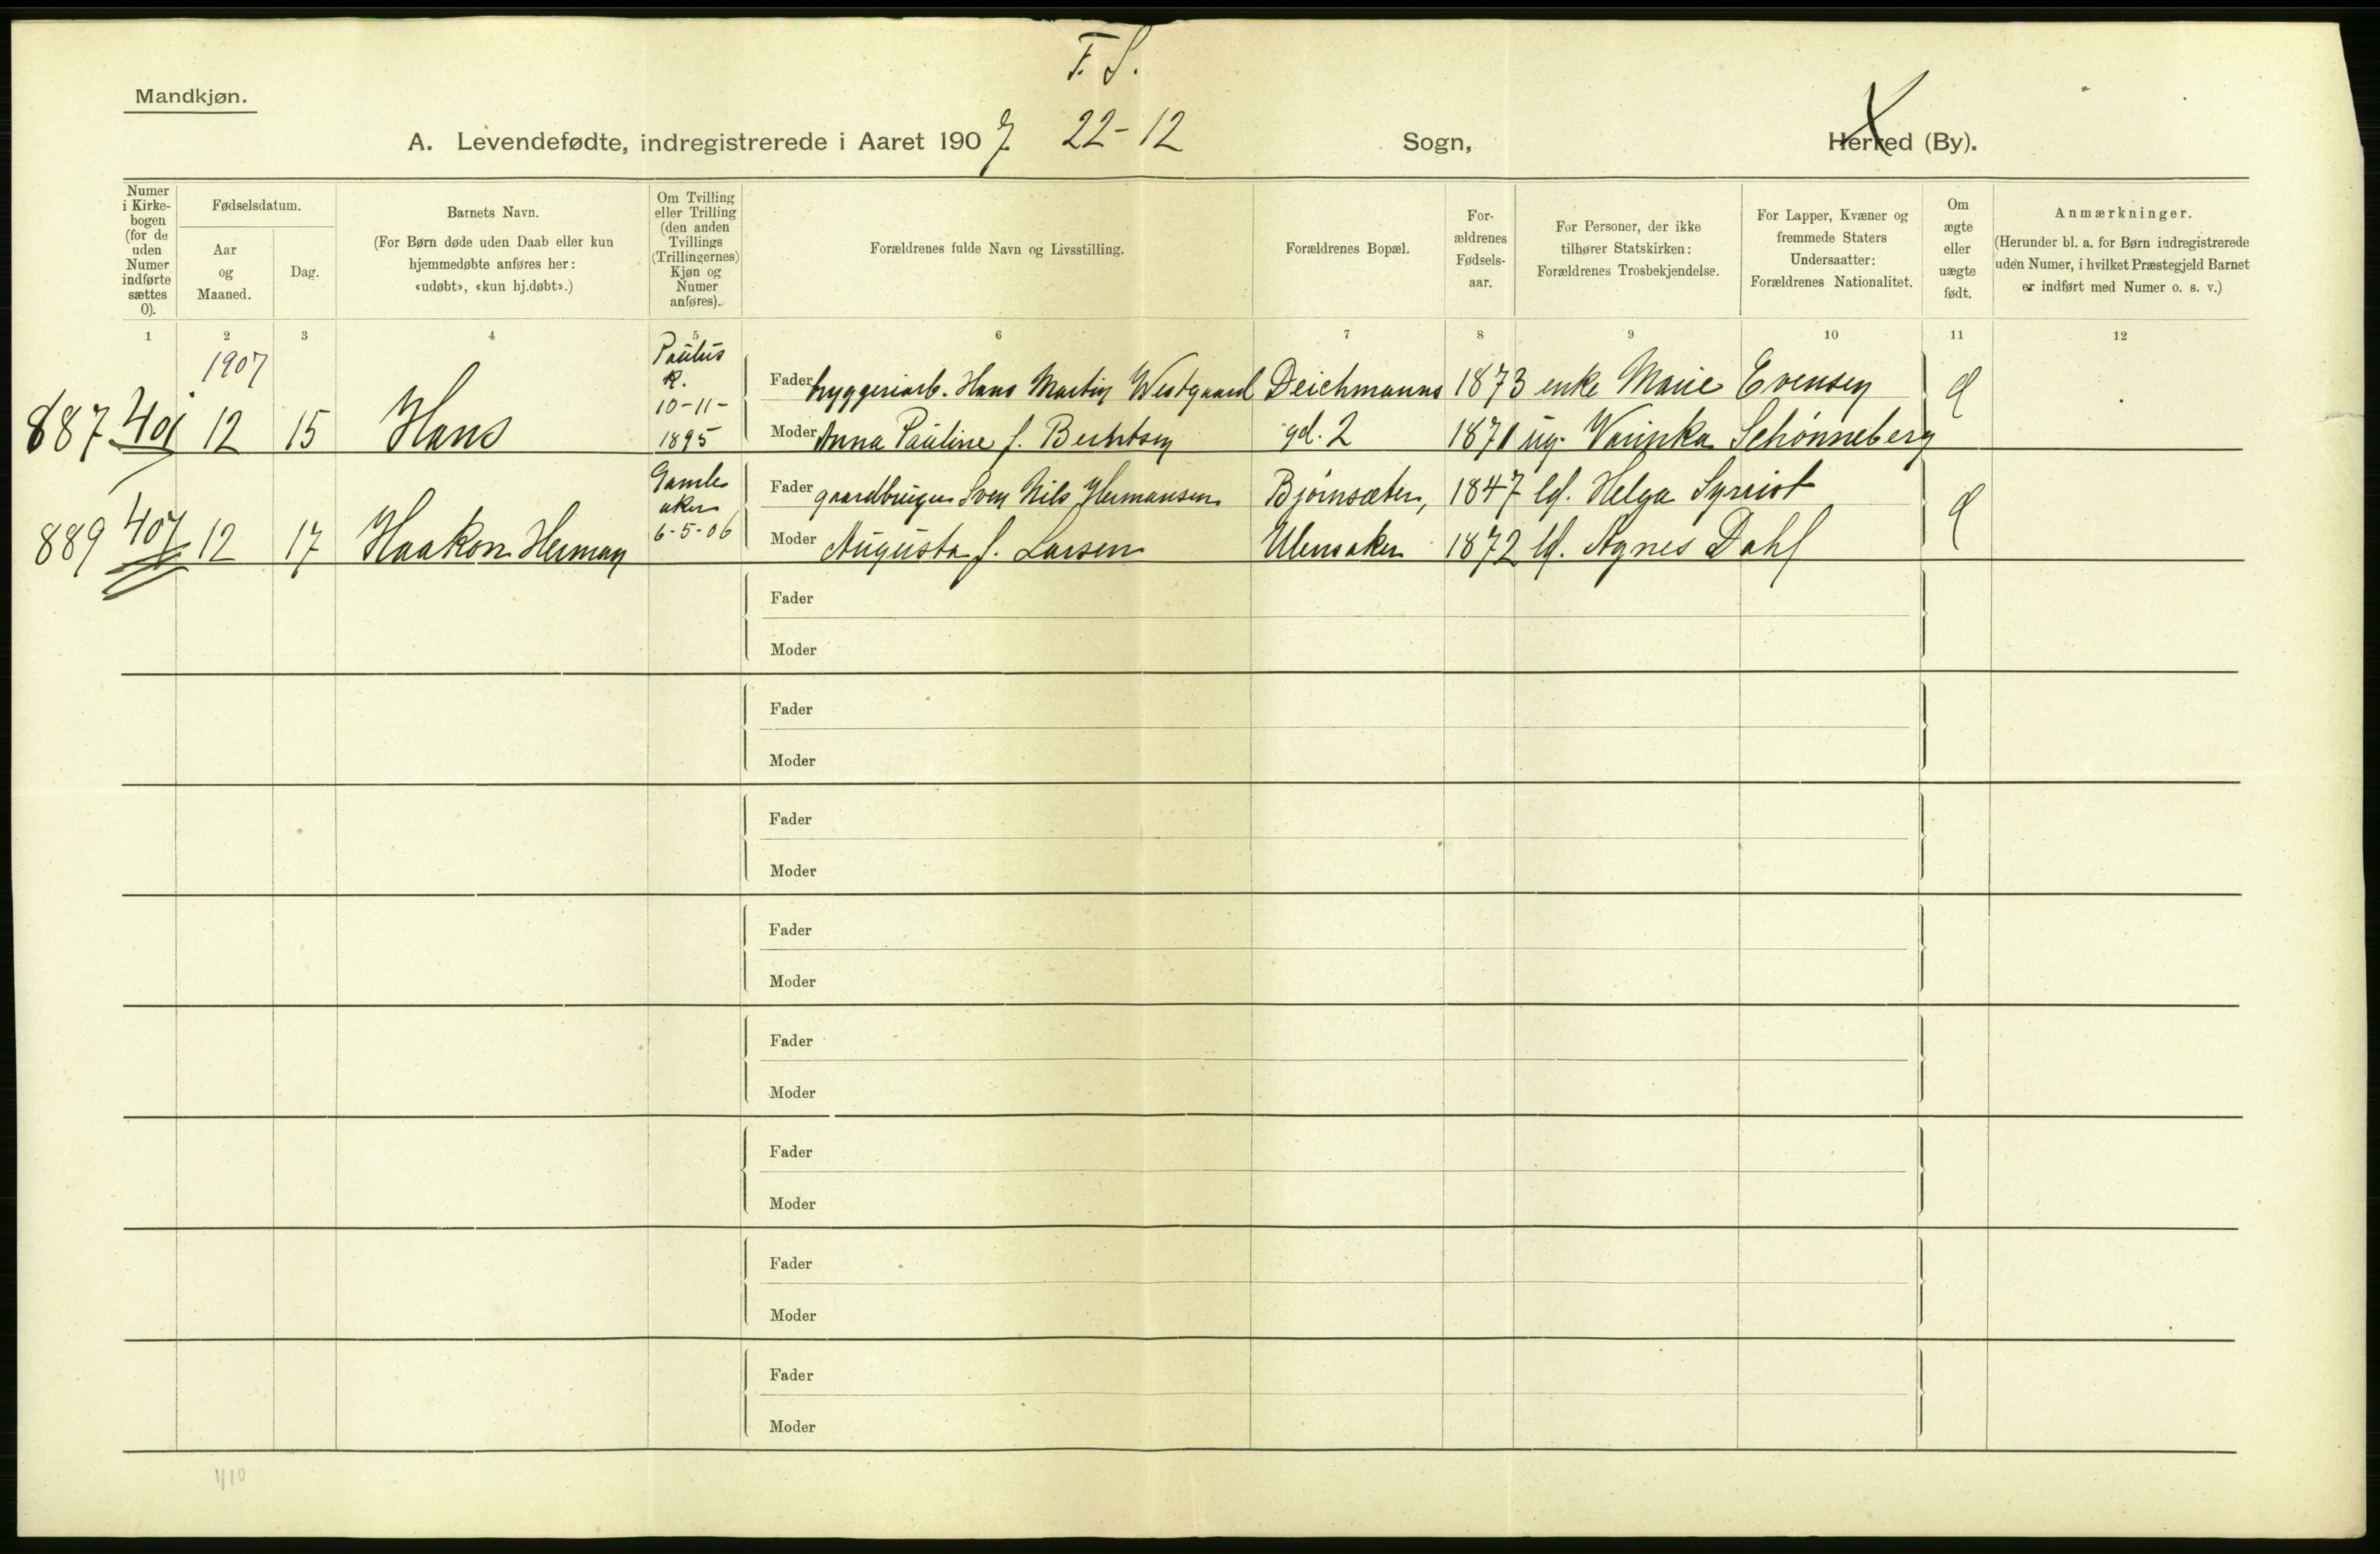 F. S.
Mandkjøn.
A. Levendefødte, indregistrerede i Aaret 1907 22-12 Sogn, Herred (By).
Numer i Kirke-bogen (for de uden Numer indførte sættes 0).
Fødselsdatum.
Aar og Maaned.
Dag.
Barnets Navn.
(For Børn døde uden Daab eller kun
hjemmedøbte anføres her:
«udøbt», «kun hj.døbt».)
Om Tvilling
eller Trilling
(den anden
Tvillings
(Trillingernes)
Kjøn og
Numer
anføres).
Forældrenes fulde Navn og Livsstilling.
Forældrenes Bopæl.
For-
ældrenes
Fødsels-
aar.
For Personer, der ikke
tilhører Statskirken:
Forældrenes Trosbekjendelse.
For Lapper, Kvæner og
fremmede Staters
Undersaatter:
Forældrenes Nationalitet.
Om
ægte
eller
uægte
født.
Anmærkninger.
(Herunder bl. a. for Børn indregistrerede
uden Numer, i hvilket Præstegjeld Barnet
er indført med Numer o. s. v.)
1 2 3 4 5 6 7 8 9 10 11 12
1907
Paulus
K.
10-11-
1895
Fader bryggeriarb. Hans Martin Westgaard Deichmanns 1873 enke Marie Evensen
887 12 15 Hans Moder Anna Pauline f. Berntsen gd. 2 1871 ug. Schønneberg
Gamle
aker
6-5-06
Fader gaardbruger Sven Nils Hermansen Bjørnsæter, 1847 Helga
889 407 12 17 Haakon Herman Moder Augusta f. Larsen Ulensaker 1872 Agnes Dahl
Fader
Moder
Fader
Moder
Fader
Moder
Fader
Moder
Fader
Moder
Fader
Moder
Fader
Moder
Fader
Moder
410